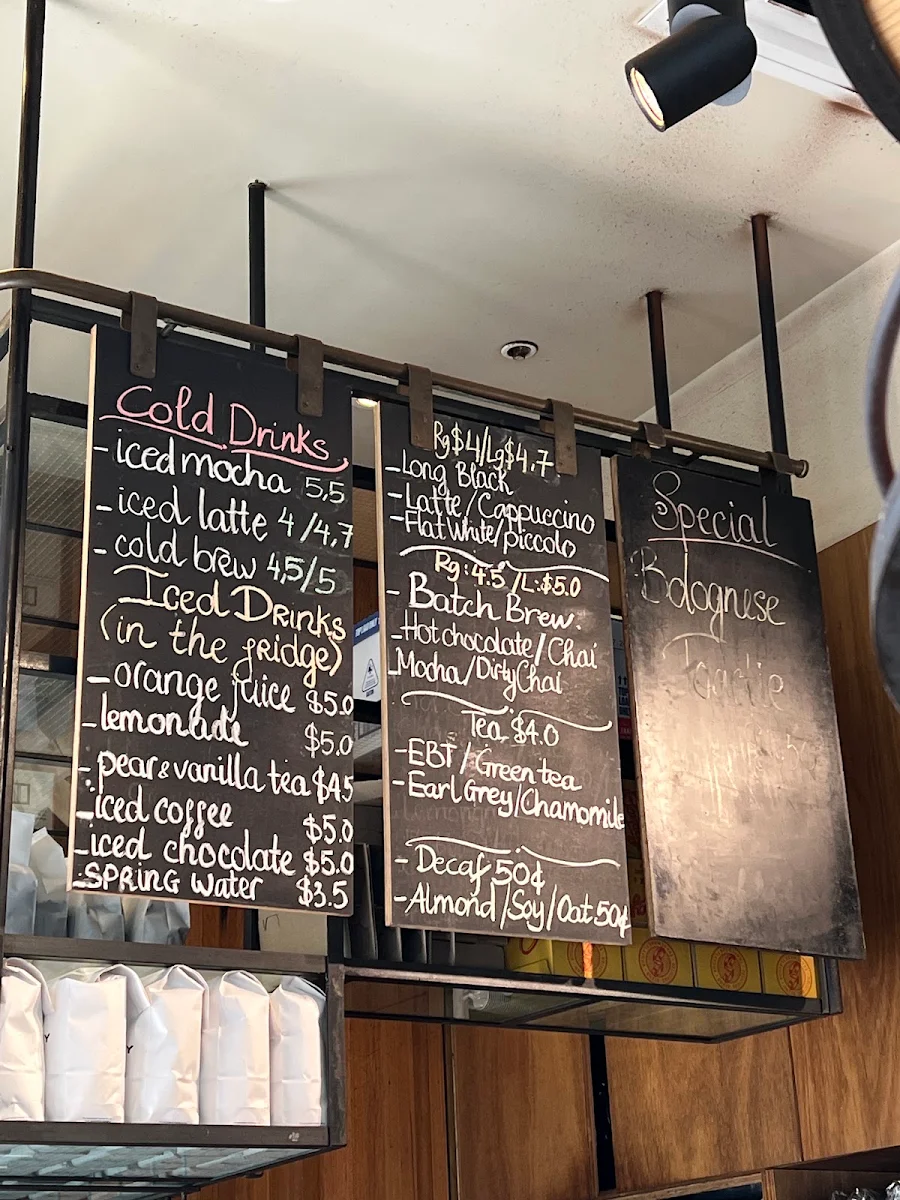 Cold Drinks
- iced mocha 5,5
- iced latte 4/4,7
- cold brew 4,5/5
Iced Drinks
(in the fridge)
- orange juice $5.0
- lemonade $5.0
- pear & vanilla tea $4.5
- iced coffee $5.0
- iced chocolate $5.0
- SPRING Water $3.5
Rg $4/Lg $4.7
- Long Black
- Latte/Cappuccino
- Flat White/piccolo
Rg: 4.5/L: $5.0
- Batch Brew.
- Hot chocolate/Chai
- Mocha/Dirty Chai
Tea $4.0
- EBT / Green tea
- Earl Grey/Chamomile
- Decaf 50¢
- Almond/Soy/Oat 50¢
Special
Bolognese